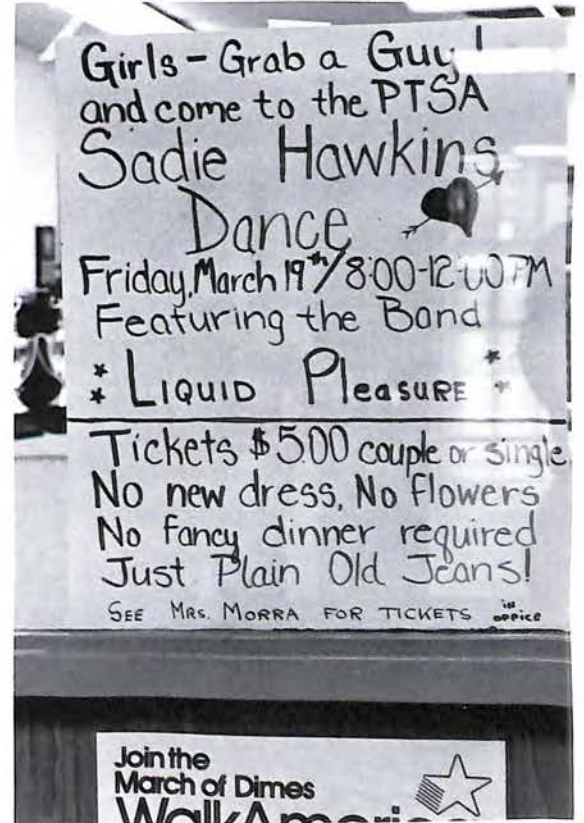 Girls - Grab a Guy!
and come to the PTSA
Sadie Hawkins
Dance
Friday, March 19th/8:00-12:00 PM
Featuring the Band
LIQUID PLeasURE
Tickets $5.00 couple or single
No new dress, No flowers
No fancy dinner required
Just Plain Old Jeans!
SEE MRS. MORRA FOR TICKETS in office
Join the
March of Dimes
WalkAmerica